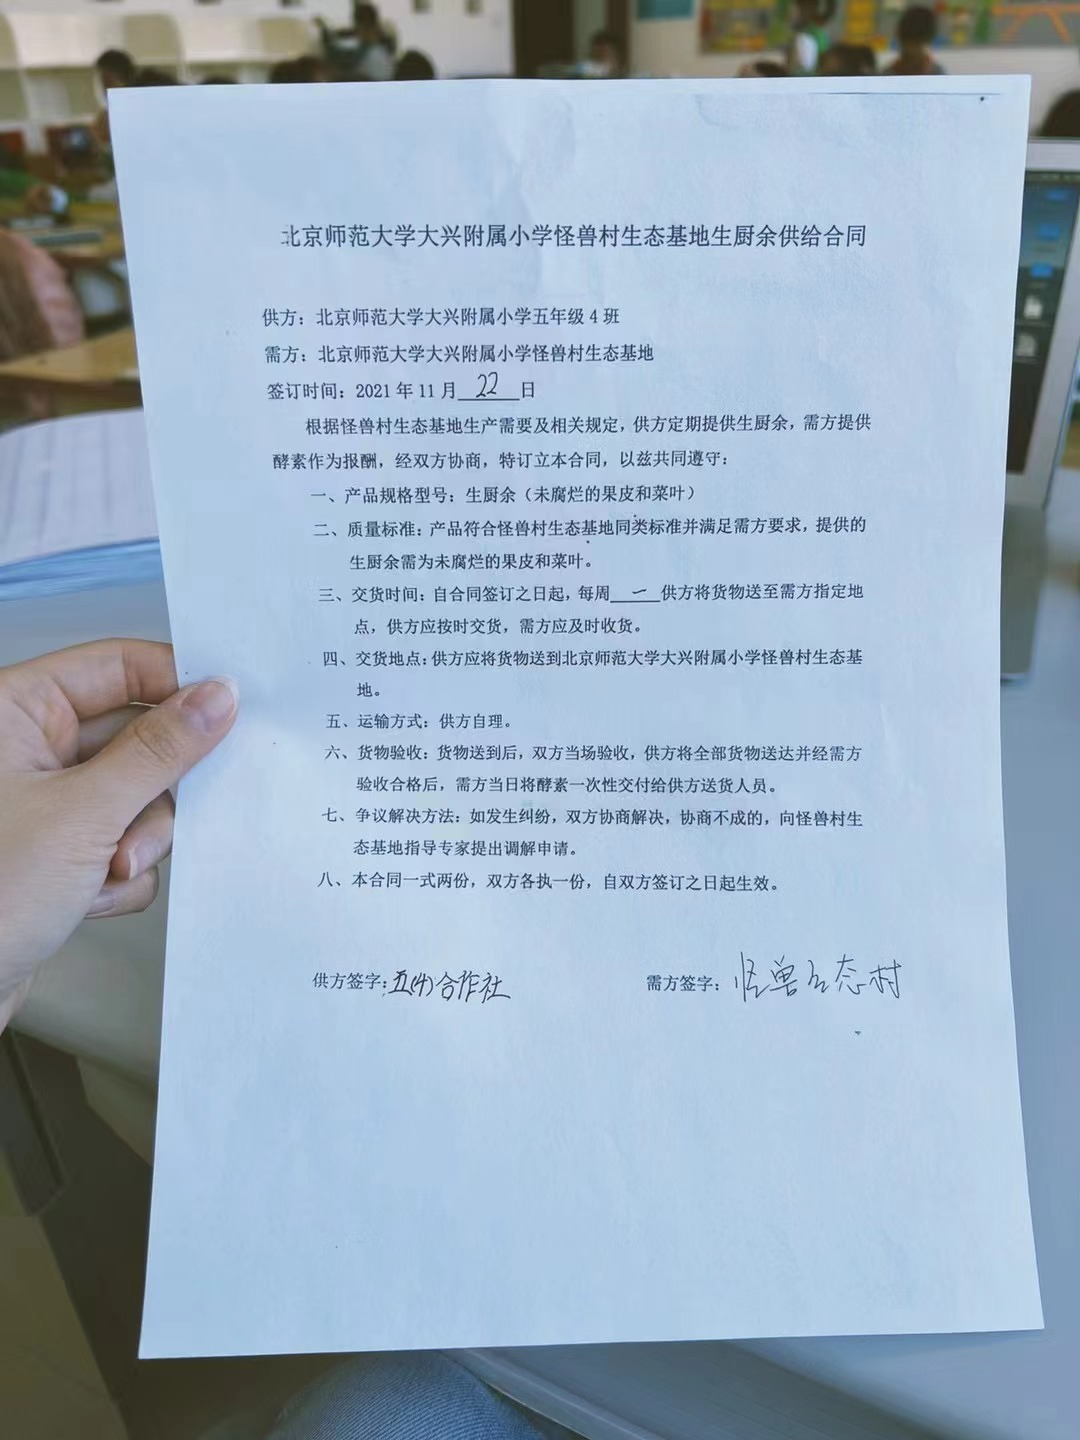 北京师范大学大兴附属小学怪兽村生态基地生厨余供给合同
供方：北京师范大学大兴附属小学五年级4班
需方：北京师范大学大兴附属小学怪兽村生态基地
签订时间：2021年11月22日
根据怪兽村生态基地生产需要及相关规定，供方定期提供生厨余，需方提供
酵素作为报酬，经双方协商，特订立本合同，以兹共同遵守：
一、产品规格型号：生厨余（未腐烂的果皮和菜叶）
二、质量标准：产品符合怪兽村生态基地同类标准并满足需方要求，提供的
生厨余需为未腐烂的果皮和菜叶。
三、交货时间：自合同签订之日起，每周一供方将货物送至需方指定地
点，供方应按时交货，需方应及时收货。
四、交货地点：供方应将货物送到北京师范大学大兴附属小学怪兽村生态基
地。
五、运输方式：供方自理。
六、货物验收：货物送到后，双方当场验收，供方将全部货物送达并经需方
验收合格后，需方当日将酵素一次性交付给供方送货人员。
七、争议解决方法：如发生纠纷，双方协商解决，协商不成的，向怪兽村生
态基地指导专家提出调解申请。
八、本合同一式两份，双方各执一份，自双方签订之日起生效。
供方签字：五(4)合作社
需方签字：怪兽生态村